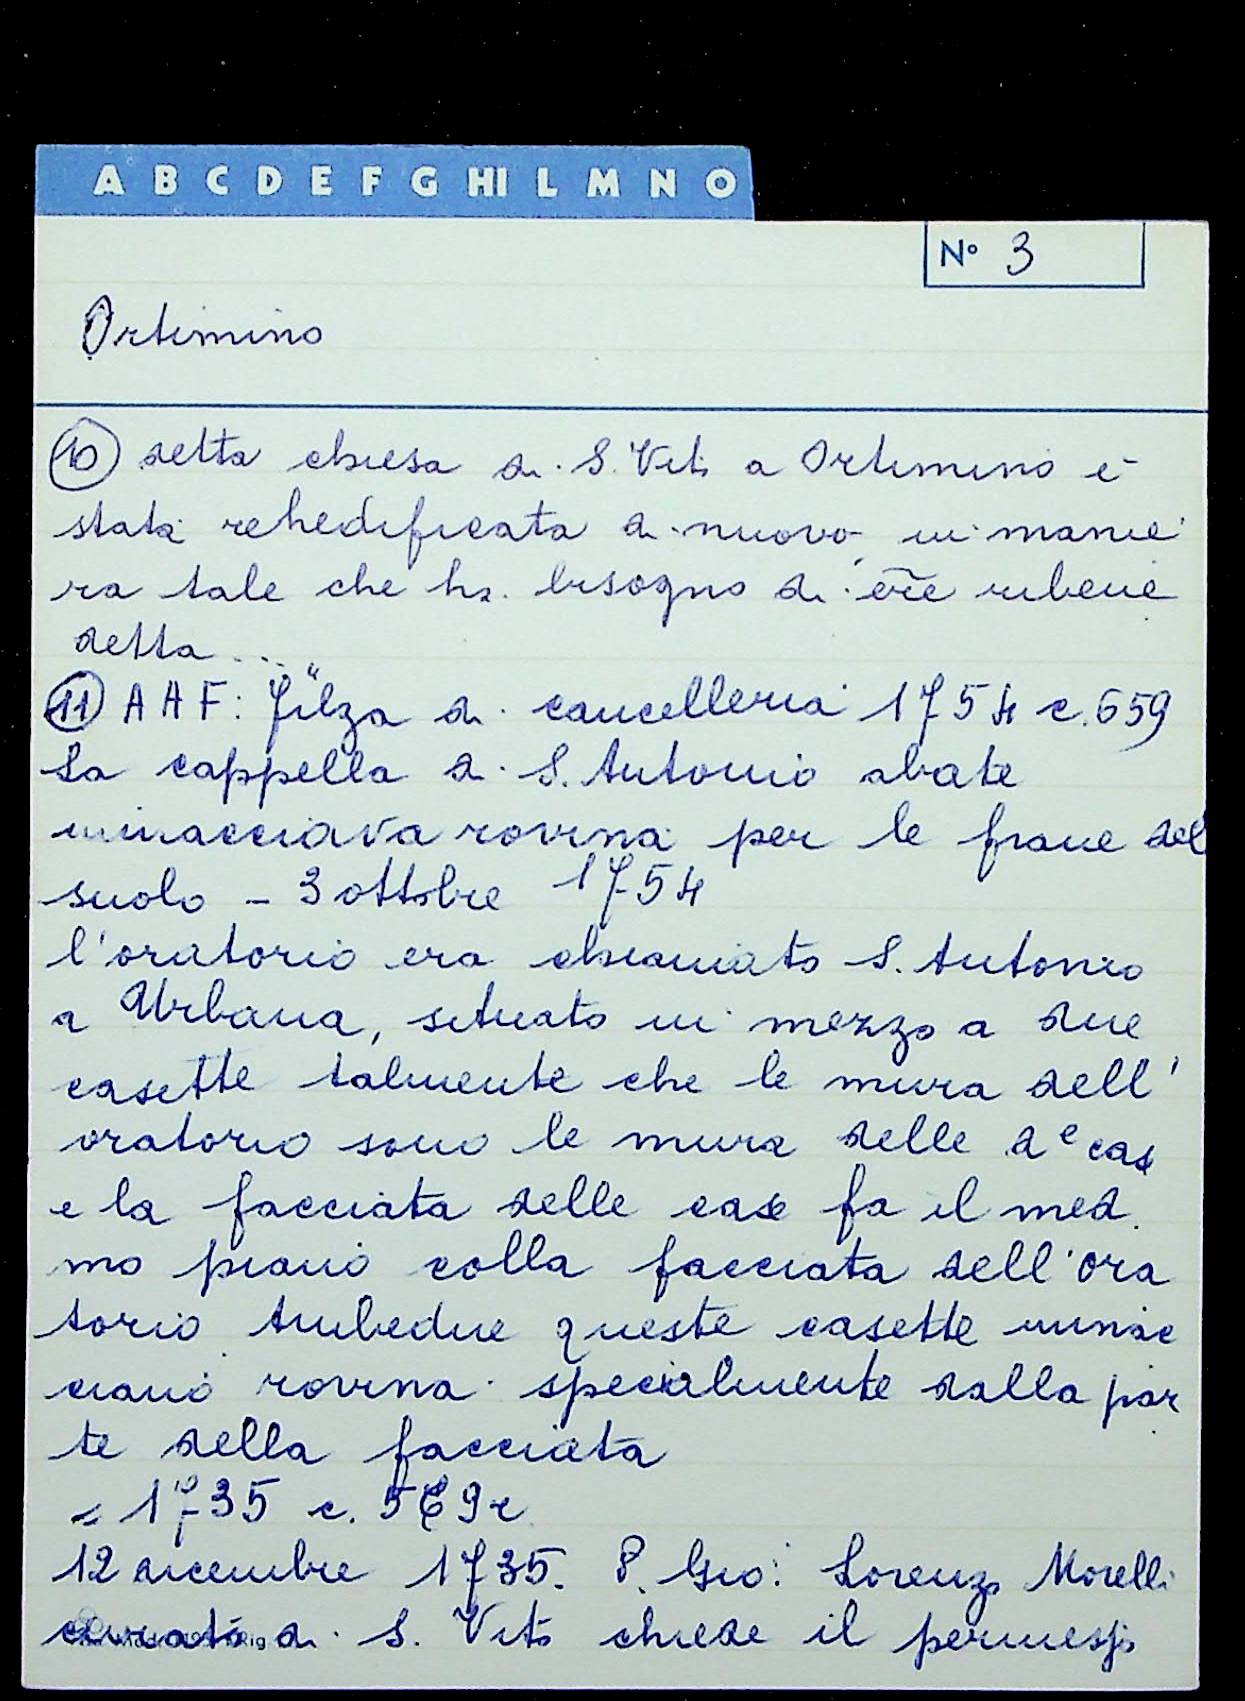 A B C D E F G HI L M N O
N° 3
Ortimino
10 detta chiesa di S. Vito a Ortimino è
stata rehedificata di nuovo in manie
ra tale che ha bisogno di er̃e ribene
detta ..."
11 AAF: Filza di cancelleria 1754 c. 659
La cappella di S. Antonio abate
minacciava rovina per le frane del
suolo - 3 ottobre 1754
l'oratorio era chiamato S. Antonio
a Urbana, situato in mezzo a due
casette talmente che le mura dell'
oratorio sono le mura delle de case
e la facciata delle case fa il med.
mo piano colla facciata dell'ora
torio Ambedue queste casette minac
ciano rovina specialmente dalla par
te della facciata
= 1735 c. 569r
12 dicembre 1735. P. Gio: Lorenzo Morelli
curato di S. Vito chiede il permesso